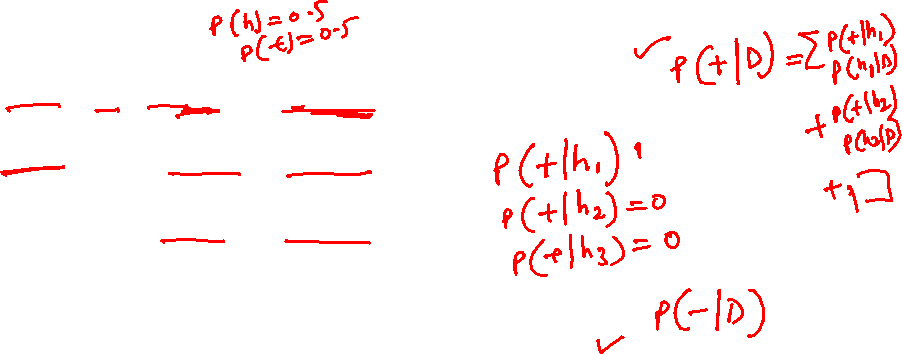 P(h)=0.5
P(t)=0.5
✓ P(+|D) = ∑ P(+|h₁)
P(h₁|D)
+ P(+|h₂)
P(h₂|D)
+
P(+|h₁)
P(+|h₂) = 0
P(+|h₃) = 0
✓ P(-|D)